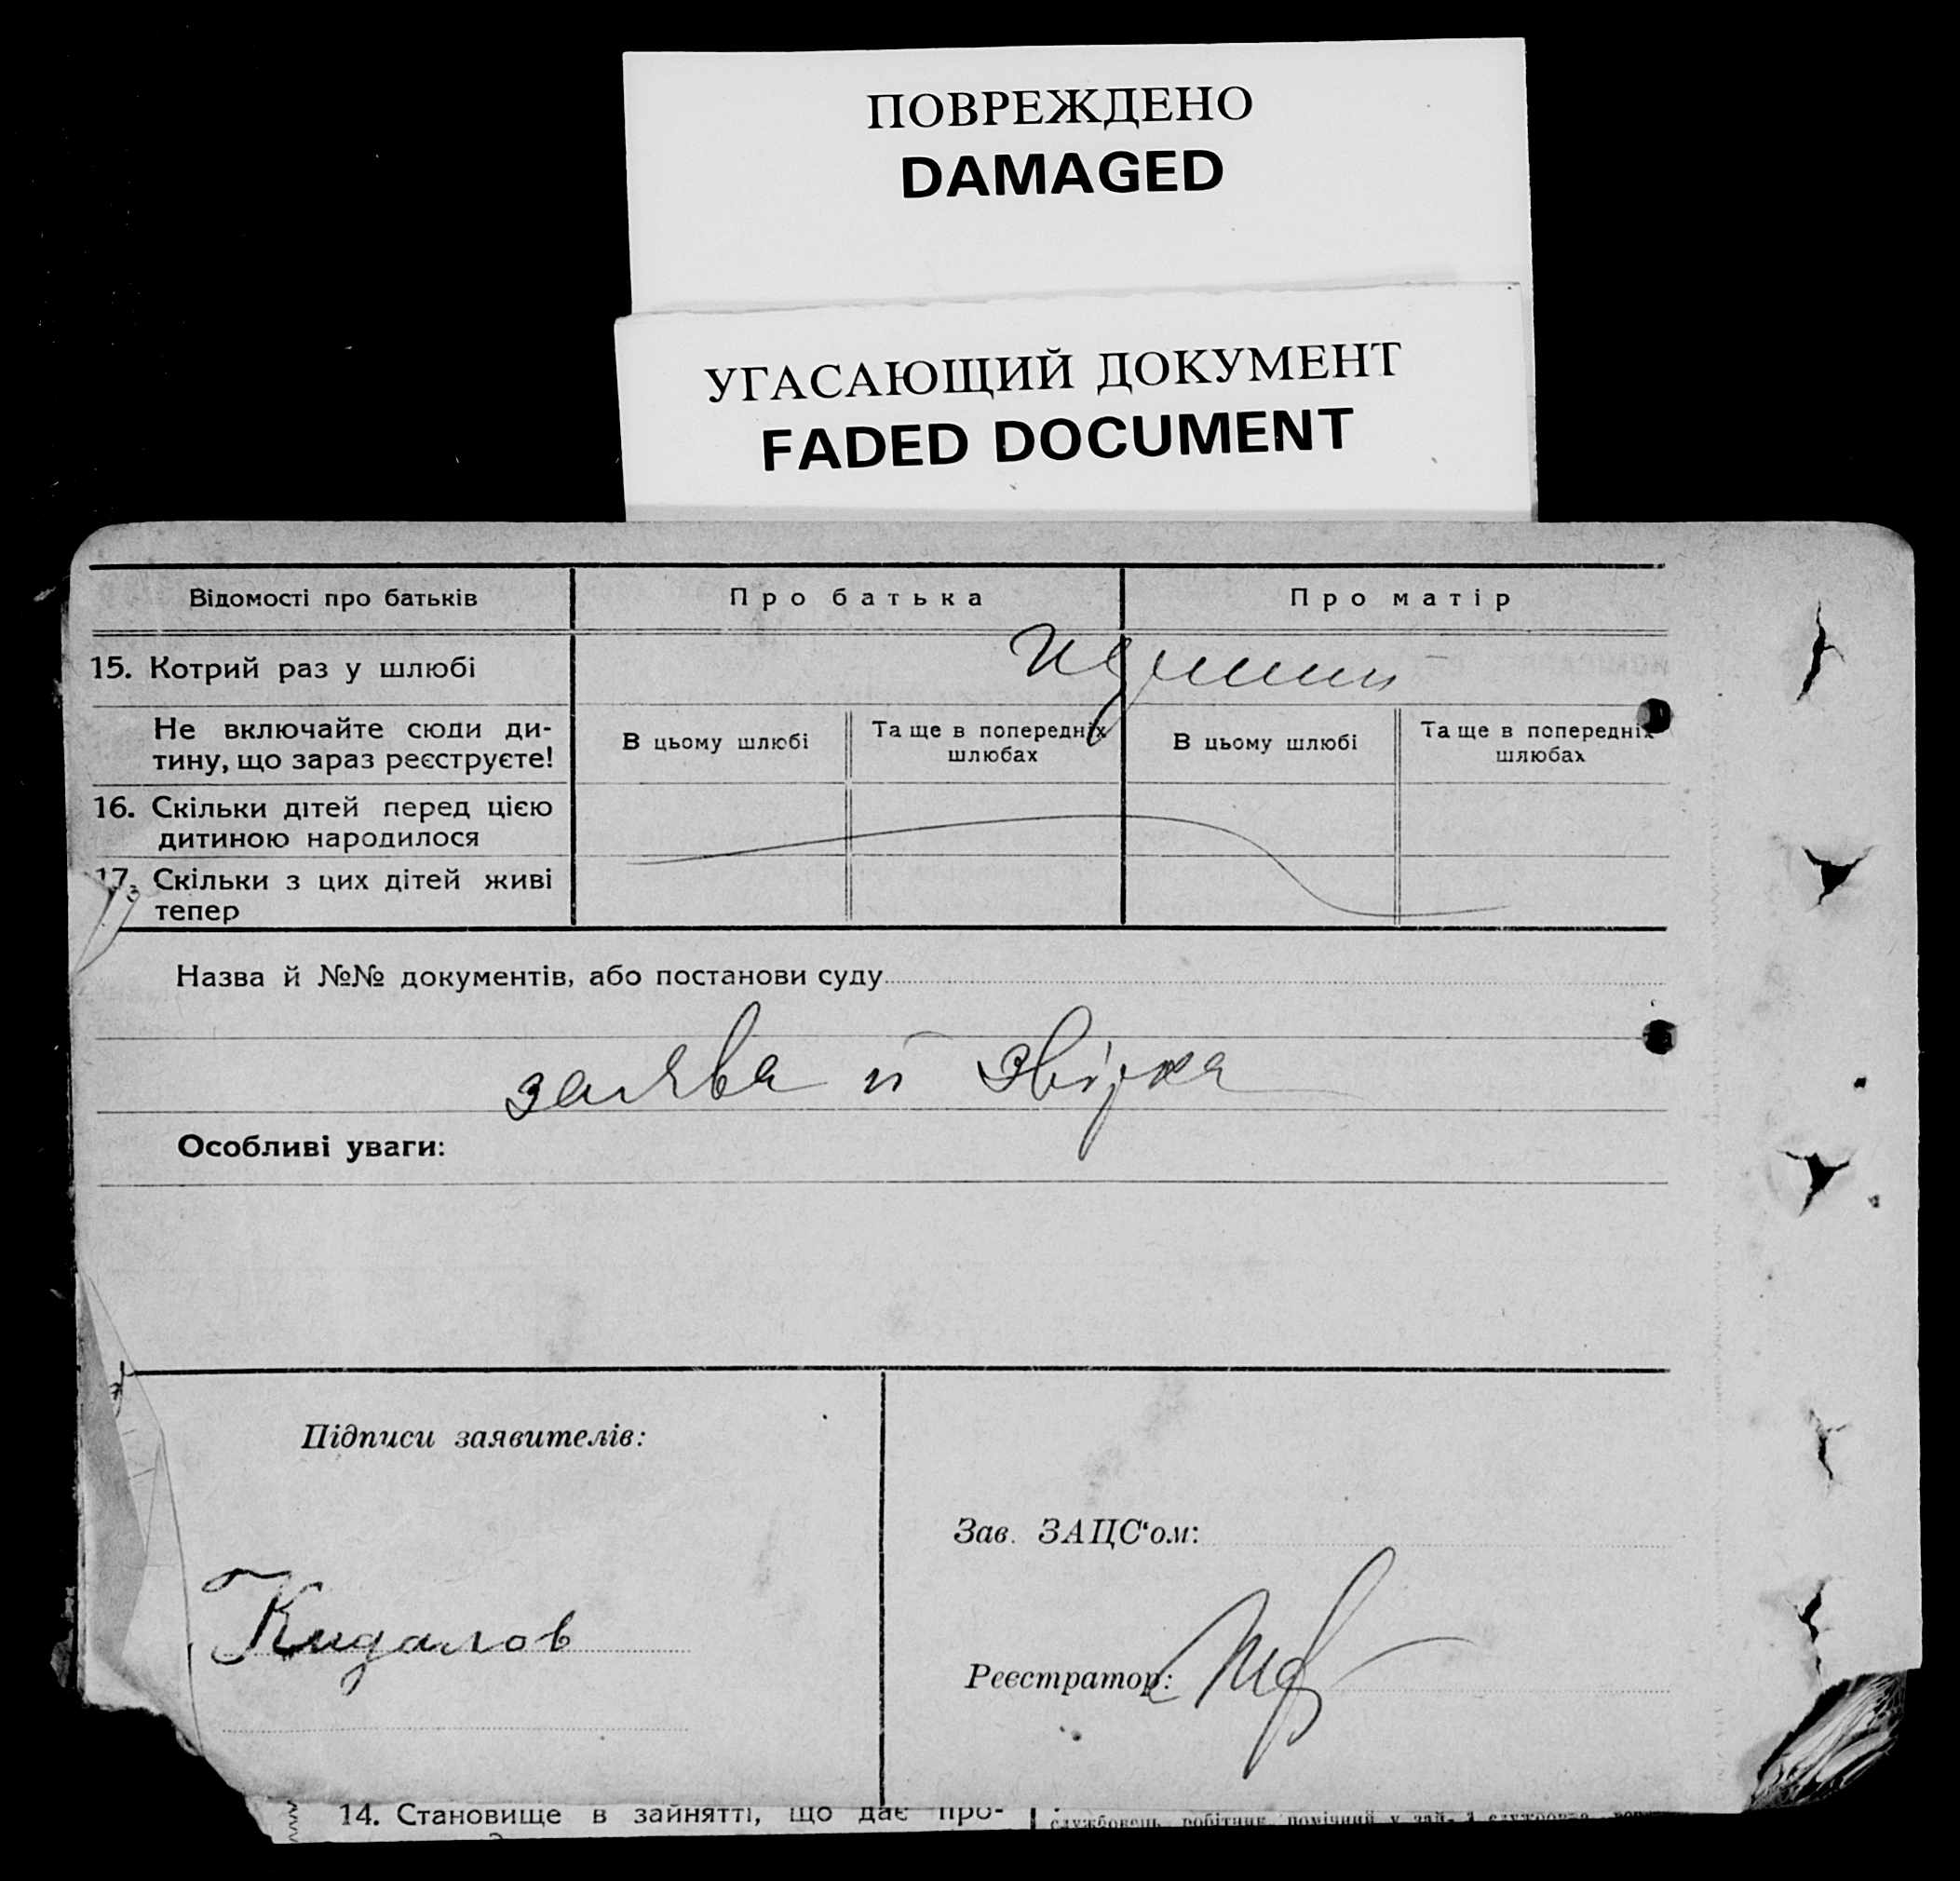 ПОВРЕЖДЕНО
DAMAGED
УГАСАЮЩИЙ ДОКУМЕНТ
FADED DOCUMENT
Відомості про батьків
Про батька
Про матір
15. Котрий раз у шлюбі
Не включайте сюди ди-
тину, що зараз реєструєте!
В цьому шлюбі
Та ще в попередніх
шлюбах
В цьому шлюбі
Та ще в попередніх
шлюбах
16. Скільки дітей перед цією
дитиною народилося
17. Скільки з цих дітей живі
тепер
Назва й №№ документів, або постанови суду
заява й звірка
Особливі уваги:
Підписи заявителів:
Зав. ЗАЦС'ом:
Кидалов
Реєстратор:
14. Становище в зайнятті, що дає про-
службовець, робітник, помічний у зай-